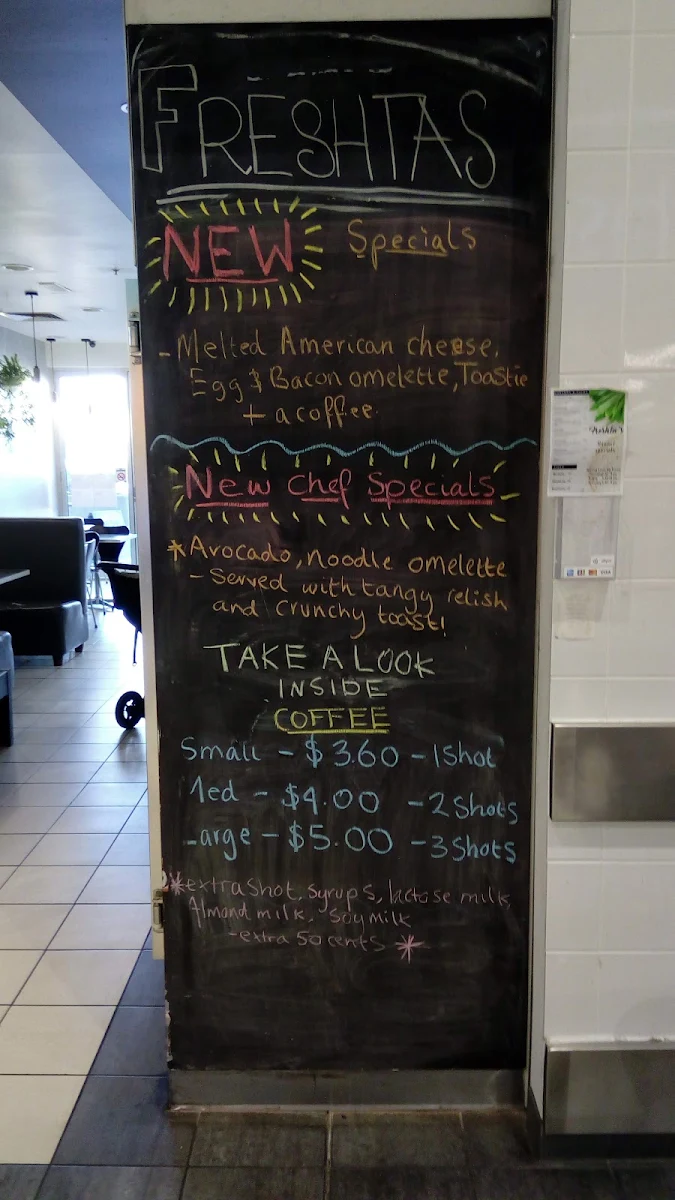 FRESHTAS
NEW Specials
- Melted American cheese,
Egg & Bacon omelette, Toastie
+ a coffee.
New Chef Specials
*Avocado, noodle omelette
- Served with tangy relish
and crunchy toast!
TAKE A LOOK
INSIDE
COFFEE
Small - $3.60 - 1 Shot
Med - $4.00 - 2 Shots
Large - $5.00 - 3 Shots
*extra shot, syrups, lactose milk,
Almond milk, Soy milk
-extra 50 cents *
VISA